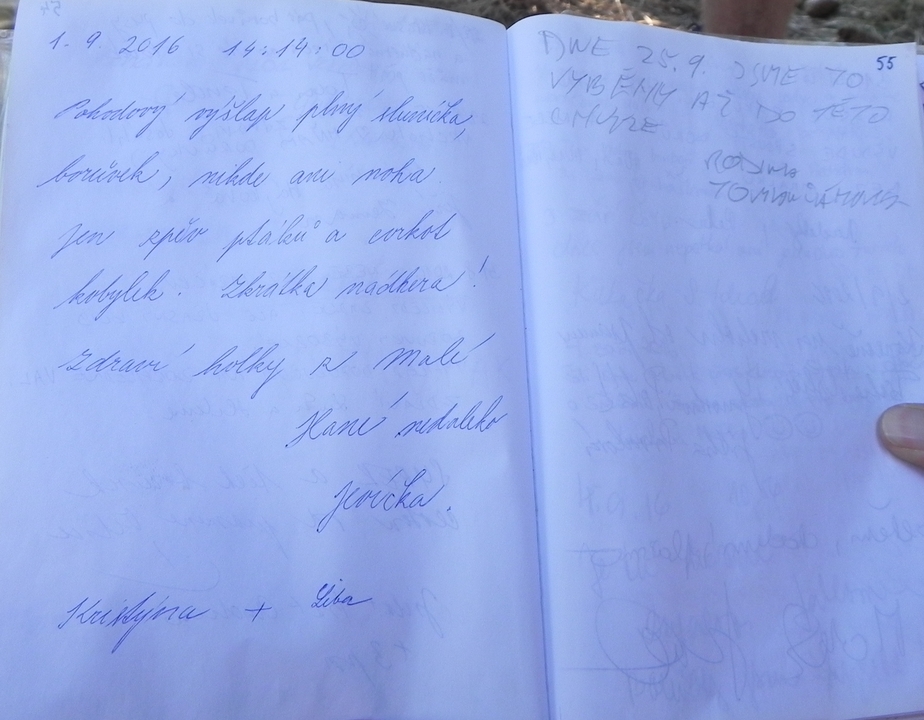 54
1. 9. 2016 14:14:00
Pohodový výšlap plný sluníčka,
borůvek, nikde ani noha
jen zpěv ptáků a cvrkot
kobylek. Zkrátka nádhera!
Zdraví holky z Malé
Hané nedaleko
Jevíčka.
Kristýna + Liba
55
DNE 25.9. JSME TO
VYBĚHLY AŽ DO TÉTO
RODINA